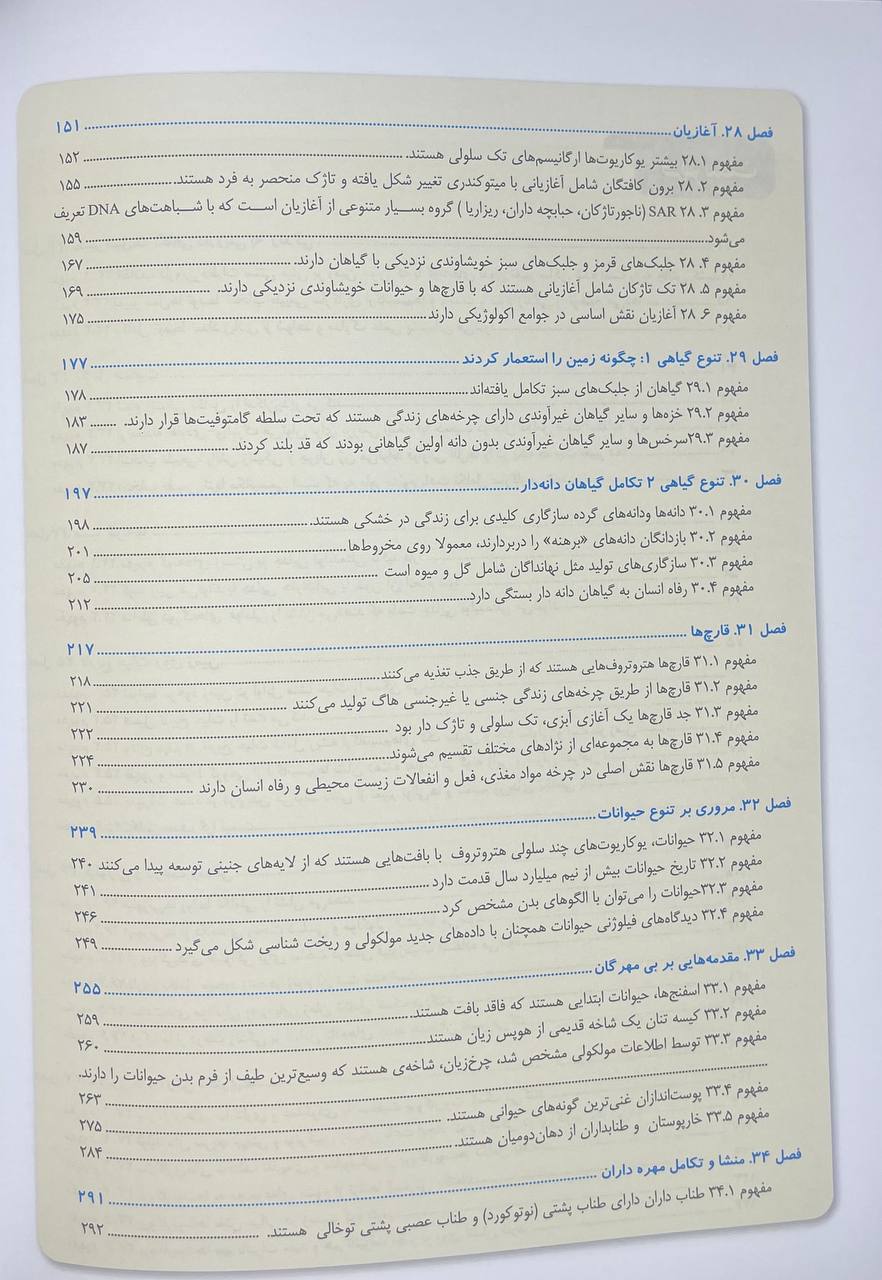 فصل ۲۸. آغازیان ۱۵۱
مفهوم ۲۸.۱ بیشتر یوکاریوت‌ها ارگانیسم‌های تک سلولی هستند. ۱۵۲
مفهوم ۲. ۲۸ برون کافتگان شامل آغازیانی با میتوکندری تغییر شکل یافته و تاژک منحصر به فرد هستند. ۱۵۵
مفهوم ۳. ۲۸ SAR (ناجورتاژکان، حبابچه داران، ریزاریا ) گروه بسیار متنوعی از آغازیان است که با شباهت‌های DNA تعریف
می‌شود. ۱۵۹
مفهوم ۴. ۲۸ جلبک‌های قرمز و جلبک‌های سبز خویشاوندی نزدیکی با گیاهان دارند. ۱۶۷
مفهوم ۵. ۲۸ تک تاژکان شامل آغازیانی هستند که با قارچ‌ها و حیوانات خویشاوندی نزدیکی دارند. ۱۶۹
مفهوم ۶. ۲۸ آغازیان نقش اساسی در جوامع اکولوژیکی دارند ۱۷۵
فصل ۲۹. تنوع گیاهی ۱: چگونه زمین را استعمار کردند ۱۷۷
مفهوم ۲۹.۱ گیاهان از جلبک‌های سبز تکامل یافته‌اند ۱۷۸
مفهوم ۲۹.۲ خزه‌ها و سایر گیاهان غیرآوندی دارای چرخه‌های زندگی هستند که تحت سلطه گامتوفیت‌ها قرار دارند. ۱۸۳
مفهوم ۲۹.۳سرخس‌ها و سایر گیاهان غیرآوندی بدون دانه اولین گیاهانی بودند که قد بلند کردند. ۱۸۷
فصل ۳۰. تنوع گیاهی ۲ تکامل گیاهان دانه‌دار ۱۹۷
مفهوم ۳۰.۱ دانه‌ها ودانه‌های گرده سازگاری کلیدی برای زندگی در خشکی هستند. ۱۹۸
مفهوم ۳۰.۲ بازدانگان دانه‌های «برهنه» را دربردارند، معمولا روی مخروط‌ها ۲۰۱
مفهوم ۳۰.۳ سازگاری‌های تولید مثل نهانداگان شامل گل و میوه است ۲۰۵
مفهوم ۳۰.۴ رفاه انسان به گیاهان دانه دار بستگی دارد ۲۱۲
فصل ۳۱. قارچ‌ها ۲۱۷
مفهوم ۳۱.۱ قارچ‌ها هتروتروف‌هایی هستند که از طریق جذب تغذیه می‌کنند ۲۱۸
مفهوم ۳۱.۲ قارچ‌ها از طریق چرخه‌های زندگی جنسی یا غیرجنسی هاگ تولید می‌کنند ۲۲۱
مفهوم ۳۱.۳ جد قارچ‌ها یک آغازی آبزی، تک سلولی و تاژک دار بود ۲۲۲
مفهوم ۳۱.۴ قارچ‌ها به مجموعه‌ای از نژادهای مختلف تقسیم می‌شوند ۲۲۴
مفهوم ۳۱.۵ قارچ‌ها نقش اصلی در چرخه مواد مغذی، فعل و انفعالات زیست محیطی و رفاه انسان دارند ۲۳۰
فصل ۳۲. مروری بر تنوع حیوانات ۲۳۹
مفهوم ۳۲.۱ حیوانات، یوکاریوت‌های چند سلولی هتروتروف با بافت‌هایی هستند که از لایه‌های جنینی توسعه پیدا می‌کنند ۲۴۰
مفهوم ۳۲.۲ تاریخ حیوانات بیش از نیم میلیارد سال قدمت دارد ۲۴۱
مفهوم ۳۲.۳حیوانات را می‌توان با الگوهای بدن مشخص کرد ۲۴۶
مفهوم ۳۲.۴ دیدگاه‌های فیلوژنی حیوانات همچنان با داده‌های جدید مولکولی و ریخت شناسی شکل می‌گیرد ۲۴۹
فصل ۳۳. مقدمه‌هایی بر بی مهرگان ۲۵۵
مفهوم ۳۳.۱ اسفنج‌ها، حیوانات ابتدایی هستند که فاقد بافت هستند ۲۵۹
مفهوم ۳۳.۲ کیسه تنان یک شاخه قدیمی از هوپس زیان هستند ۲۶۰
مفهوم ۳۳.۳ توسط اطلاعات مولکولی مشخص شد، چرخ‌زیان، شاخه‌ی هستند که وسیع‌ترین طیف از فرم بدن حیوانات را دارند.
۲۶۳
مفهوم ۳۳.۴ پوست‌اندازان غنی‌ترین گونه‌های حیوانی هستند. ۲۷۵
مفهوم ۳۳.۵ خارپوستان و طنابداران از دهان‌دومیان هستند. ۲۸۴
فصل ۳۴. منشا و تکامل مهره داران ۲۹۱
مفهوم ۳۴.۱ طناب داران دارای طناب پشتی (نوتوکورد) و طناب عصبی پشتی توخالی هستند. ۲۹۲